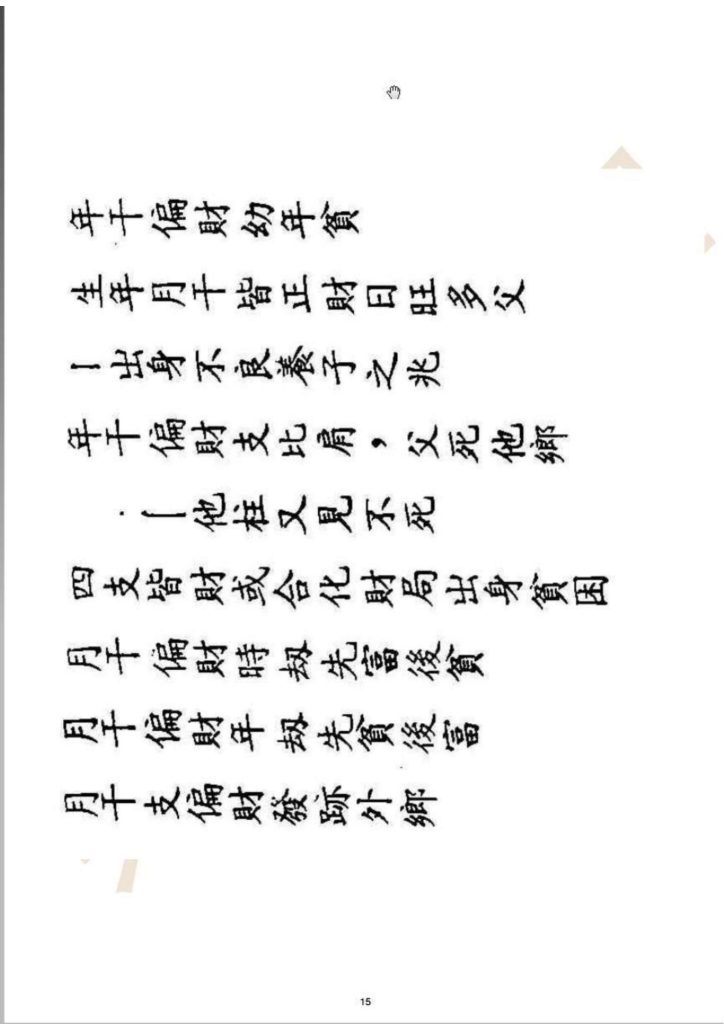 年干偏財幼年貧
生年月干皆正財日旺多父
｜出身不良養子之兆
年干偏財支比肩，父死他鄉
｜他柱又見不死
四支皆財或合化財局出身貧困
月干偏財時劫先富後貧
月干偏財年劫先貧後富
月干支偏財發跡外鄉
15